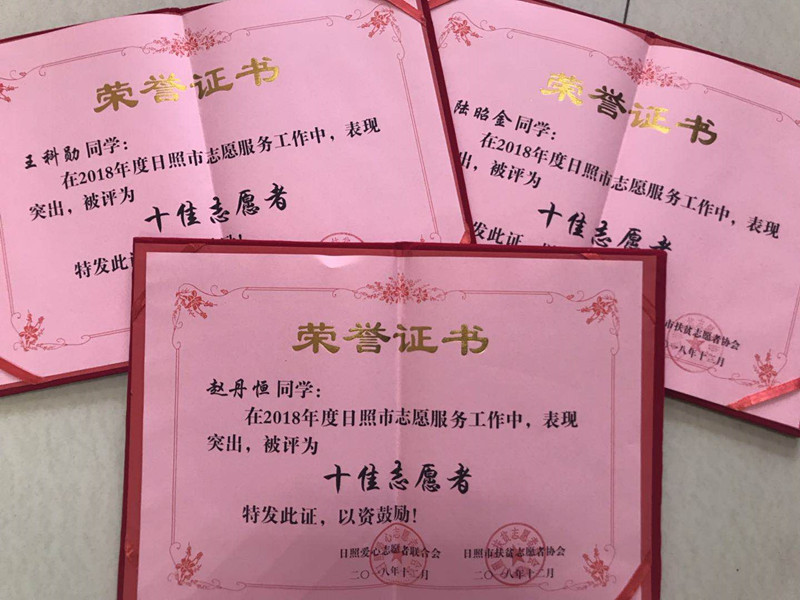 荣誉证书
王科勋同学：
在2018年度日照市志愿服务工作中，表现
突出，被评为
十佳志愿者
特发此证
励！
荣誉证书
陆昭金同学：
在2018年度日照市志愿服务工作中，表现
突出，被评为
十佳志愿者
发此证，以
市扶贫志愿者协会
一八年十二月
荣誉证书
赵丹恒同学：
在2018年度日照市志愿服务工作中，表现
突出，被评为
十佳志愿者
特发此证，以资鼓励！
日照爱心志愿者联合会 日照市扶贫志愿者协会
二〇一八年十二月 二〇一八年十二月